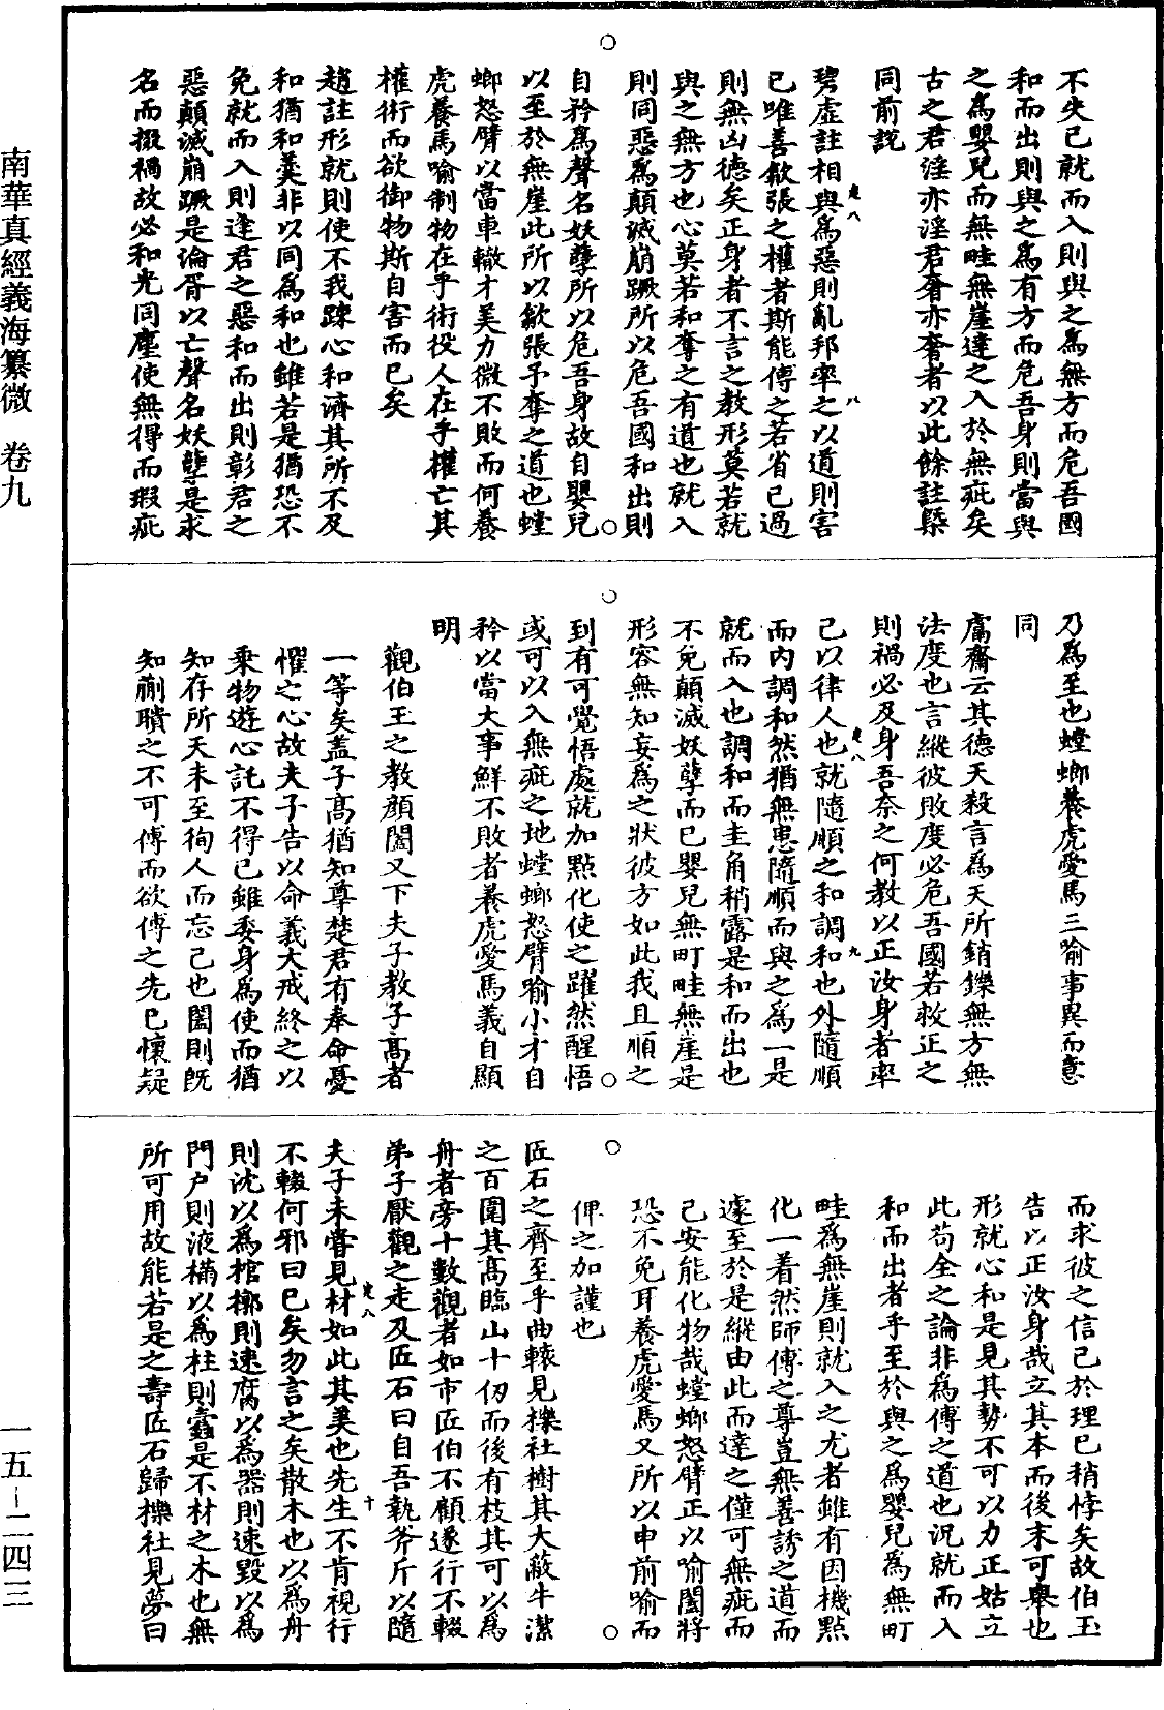 不失已就而入則與之爲無方而危吾國
和而出則與之爲有方而危吾身則當與
之爲嬰兒而無畦無崖達之入於無疵矣
古之君淫亦淫君奢亦奢者以此餘註槩
同前説
碧虛註相與爲惡則亂邦率之以道則害
己唯善歙張之權者斯能傅之若省已過
則無凶德矣正身者不言之教形莫若就
與之無方也心莫若和奪之有道也就入
則同惡爲顛滅崩蹶所以危吾國和出則
自矜爲聲名妖孽所以危吾身故自嬰兒
以至於無崖此所以歙張予奪之道也螳
螂怒臂以當車轍才美力微不敗而何養
虎養馬喻制物在乎術役人在乎權亡其
權術而欲御物斯自害而已矣
趙註形就則使不我踈心和濟其所不及
和猶和羹非以同爲和也雖若是猶恐不
免就而入則逢君之惡和而出則彰君之
惡顛滅崩蹶是淪胥以亡聲名妖孽是求
名而掇禍故必和光同塵使無得而瑕疵
乃爲至也螳螂養虎愛馬三喻事異而意
同
鬳齋云其德天殺言爲天所銷鑠無方無
法度也言縱彼敗度必危吾國若救正之
則禍必及身吾奈之何教以正汝身者率
己以律人也就隨順之和調和也外隨順
而內調和然猶無患隨順而與之爲一是
就而入也調和而圭角稍露是和而出也
不免顛滅妖孽而已嬰兒無町畦無崖是
形容無知妄爲之狀彼方如此我且順之
到有可覺悟處就加點化使之躍然醒悟
或可以入無疵之地螳螂怒臂喻小才自
矜以當大事鮮不敗者養虎愛馬義自顯
明
觀伯玉之教顔闔又下夫子教子高者
一等矣蓋子高猶知尊楚君有奉命憂
懼之心故夫子告以命義大戒終之以
乗物遊心託不得已雖委身爲使而猶
知存所天未至徇人而忘己也闔則旣
知蒯聵之不可傅而欲傅之先已懷疑
而求彼之信己於理已稍悖矣故伯玉
告以正汝身哉立其本而後末可舉也
形就心和是見其勢不可以力正姑立
此苟全之論非爲傅之道也況就而入
和而出者乎至於與之爲嬰兒爲無町
畦爲無崖則就入之尤者雖有因機點
化一着然師傅之尊豈無善誘之道而
遽至於是縱由此而達之僅可無疵而
己安能化物哉螳螂怒臂正以喻闔將
恐不免耳養虎愛馬又所以申前喻而
俾之加謹也
匠石之齊至乎曲轅見櫟社樹其大蔽牛潔
之百圍其高臨山十仞而後有枝其可以爲
舟者旁十數觀者如市匠伯不顧遂行不輟
弟子厭觀之走及匠石曰自吾執斧斤以隨
夫子未嘗見材如此其美也先生不肯視行
不輟何邪曰已矣勿言之矣散木也以爲舟
則沈以爲棺槨則速腐以爲器則速毀以爲
門户則液樠以爲柱則蠹是不材之木也無
所可用故能若是之壽匠石歸櫟社見夢曰
南華真經義海纂微　卷九
一五－二四三